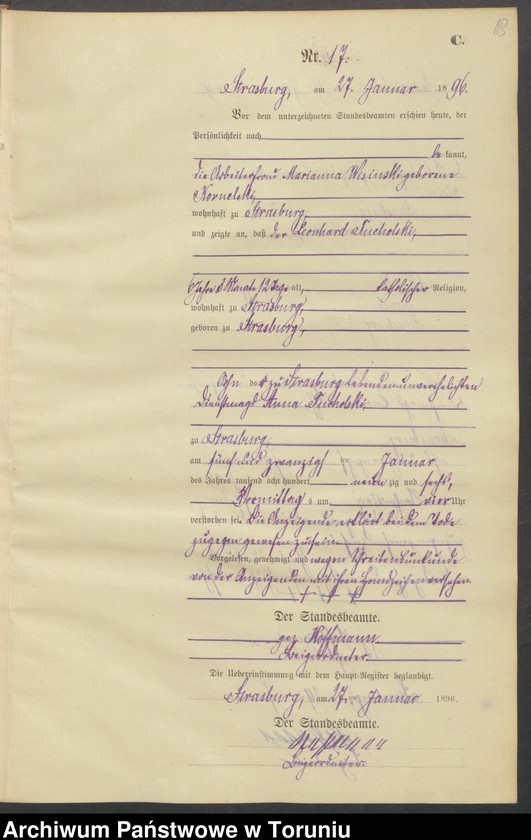 18
C.
Nr. 17.
Strasburg, am 27. Januar 1896.
Vor dem unterzeichneten Standesbeamten erschien heute, der
Persönlichkeit nach
be kannt,
die Arbeiterfrau Marianna Wisinski geborene
Kornelski,
wohnhaft zu Strasburg,
und zeigte an, daß der Leonhard Tucholski,
6 Jahre 3 Monate 12 Tage alt, katholischer Religion,
wohnhaft zu Strasburg,
geboren zu Strasburg,
Sohn der zu Strasburg lebenden unverehelichten
Dienstmagd Anna Tucholski,
zu Strasburg,
am fünf und zwanzigsten Januar
des Jahres tausend acht hundert neun zig und sechs,
Vormittags um vier Uhr
verstorben sei. Die Anzeigende erklärt bei dem Tode
zugegen gewesen zu sein.
Vorgelesen, genehmigt und wegen Schreibensunkunde
von der Anzeigenden mit ihren Handzeichen versehen.
+ + +
Der Standesbeamte.
gez. Hoffmann.
Beigeordneter.
Die Uebereinstimmung mit dem Haupt-Register beglaubigt.
Strasburg, am 27 ten Januar 1896.
Der Standesbeamte.
Beigeordneter.
Archiwum Państwowe w Toruniu